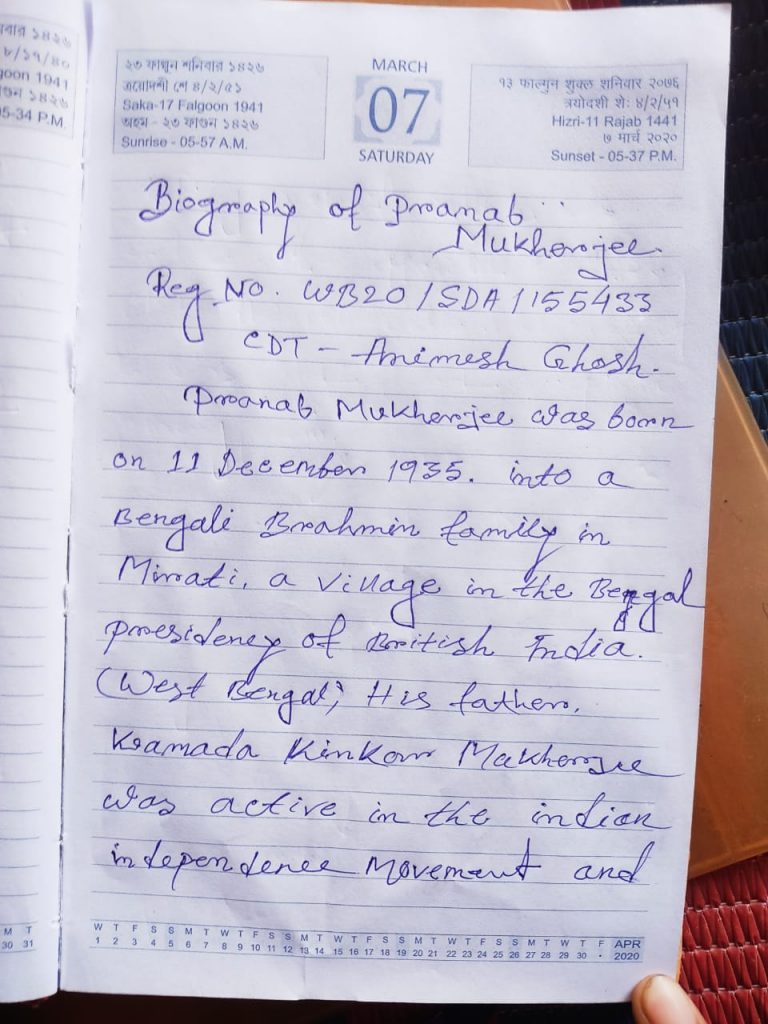 বার ১৪২৬
৮/১৭/৪০
goon 1941
১৪২৬
05-34 P.M.
২৩ ফাল্গুন শনিবার ১৪২৬
ত্রয়োদশী শে ৪/২/৫১
Saka-17 Falgoon 1941
অহম - ২৩ ফাগুন ১৪২৬
Sunrise - 05-57 A.M.
MARCH
07
SATURDAY
१३ फाल्गुन शुक्ल शनिवार २०७६
त्रयोदशी शे: ४/२/५१
Hizri-11 Rajab 1441
७ मार्च २०२०
Sunset - 05-37 P.M.
Biography of Pranab
Mukherjee.
Reg No. WB20/SDA/155433
CDT - Animesh Ghosh.
Pranab Mukherjee was born
on 11 December 1935. into a
Bengali Brahmin family in
Mirati, a village in the Bengal
presidency of British India.
(West Bengal) His father,
Kamada Kinkar Mukherjee
was active in the indian
independence Movement and
M T
30 31
W T F S S M T W T F S S M T W T F S S M T W T F S S M T W T F APR
1 2 3 4 5 6 7 8 9 10 11 12 13 14 15 16 17 18 19 20 21 22 23 24 25 26 27 28 29 30 • 2020